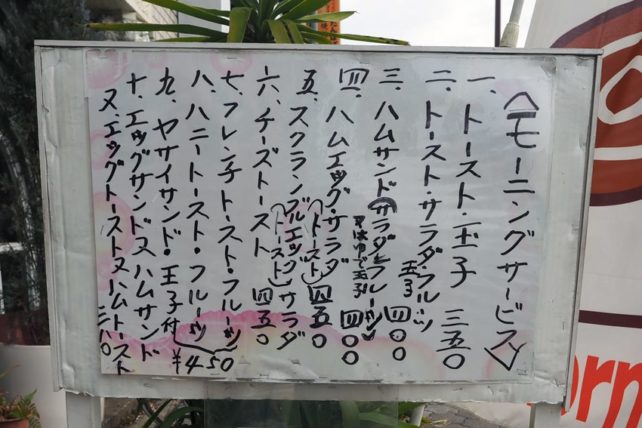 〈モーニングサービス〉
一、トースト・玉子 三五〇
二、トーストサラダ・フルーツ 玉子 四〇〇
三、ハムサンド(サラダとフルーツ) 又はゆで玉子 四〇〇
四、ハムエッグ・サラダ(トースト) 四五〇
五、スクランブルエッグ(トースト)サラダ 四五〇
六、チーズトースト
七、フレンチトースト・フルーツ
八、ハニートースト・フルーツ ¥450
九、ヤサイサンド・玉子付
十、エッグサンド又ハムサンド
又、エッグトースト又ハムトースト
orn